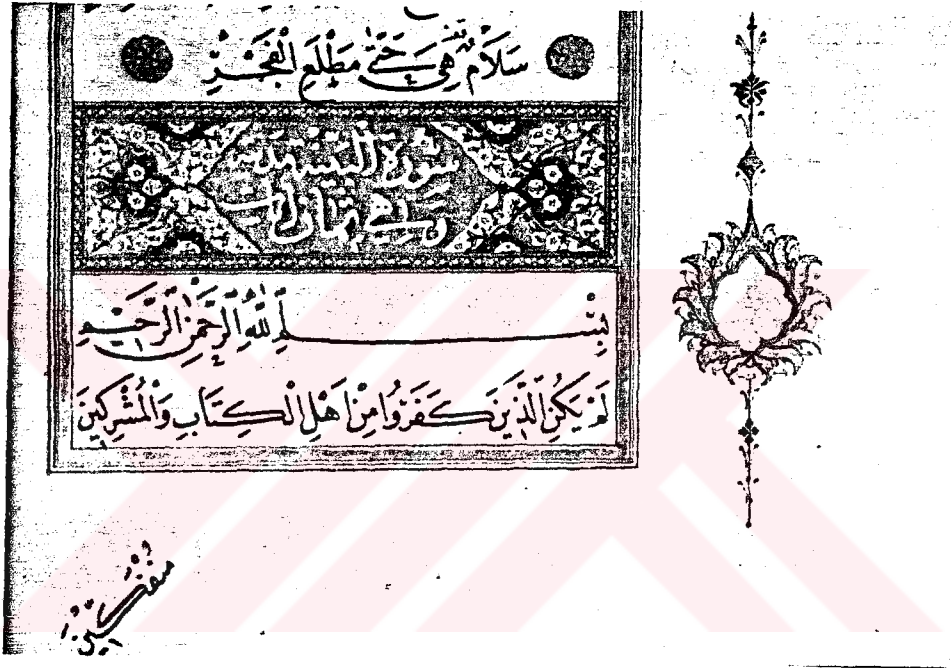 سَلَامٌ هِيَ حَتّٰى مَطْلَعِ الْفَجْرِ
سورة البينة مدنية
وهي ثمان ايات
بِسْمِ اللّٰهِ الرَّحْمٰنِ الرَّحِيمِ
لَمْ يَكُنِ الَّذِينَ كَفَرُوا مِنْ اَهْلِ الْكِتَابِ وَالْمُشْرِكِينَ
مُنْفَكِّينَ